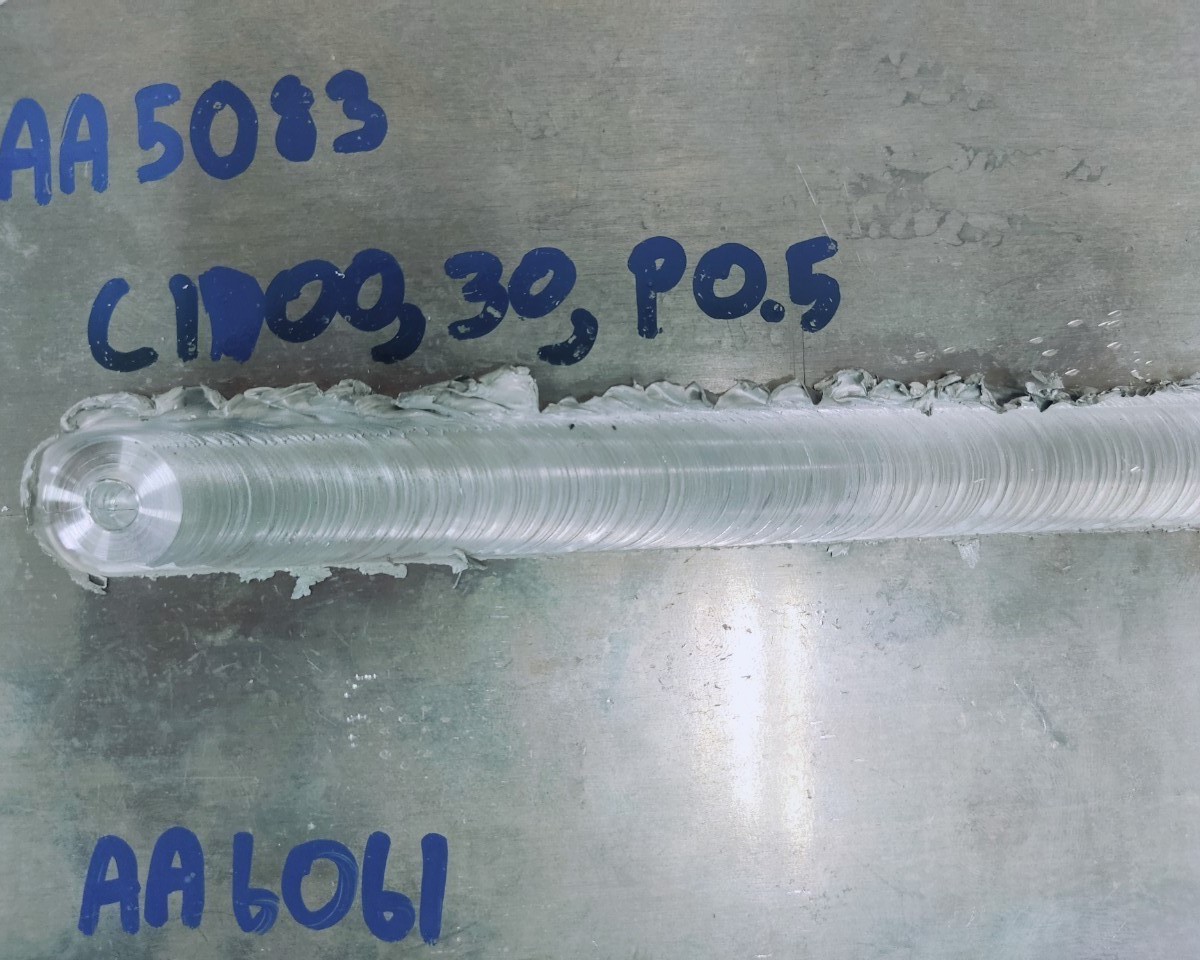 AA5083
C1000, 30, P0.5
AA6061